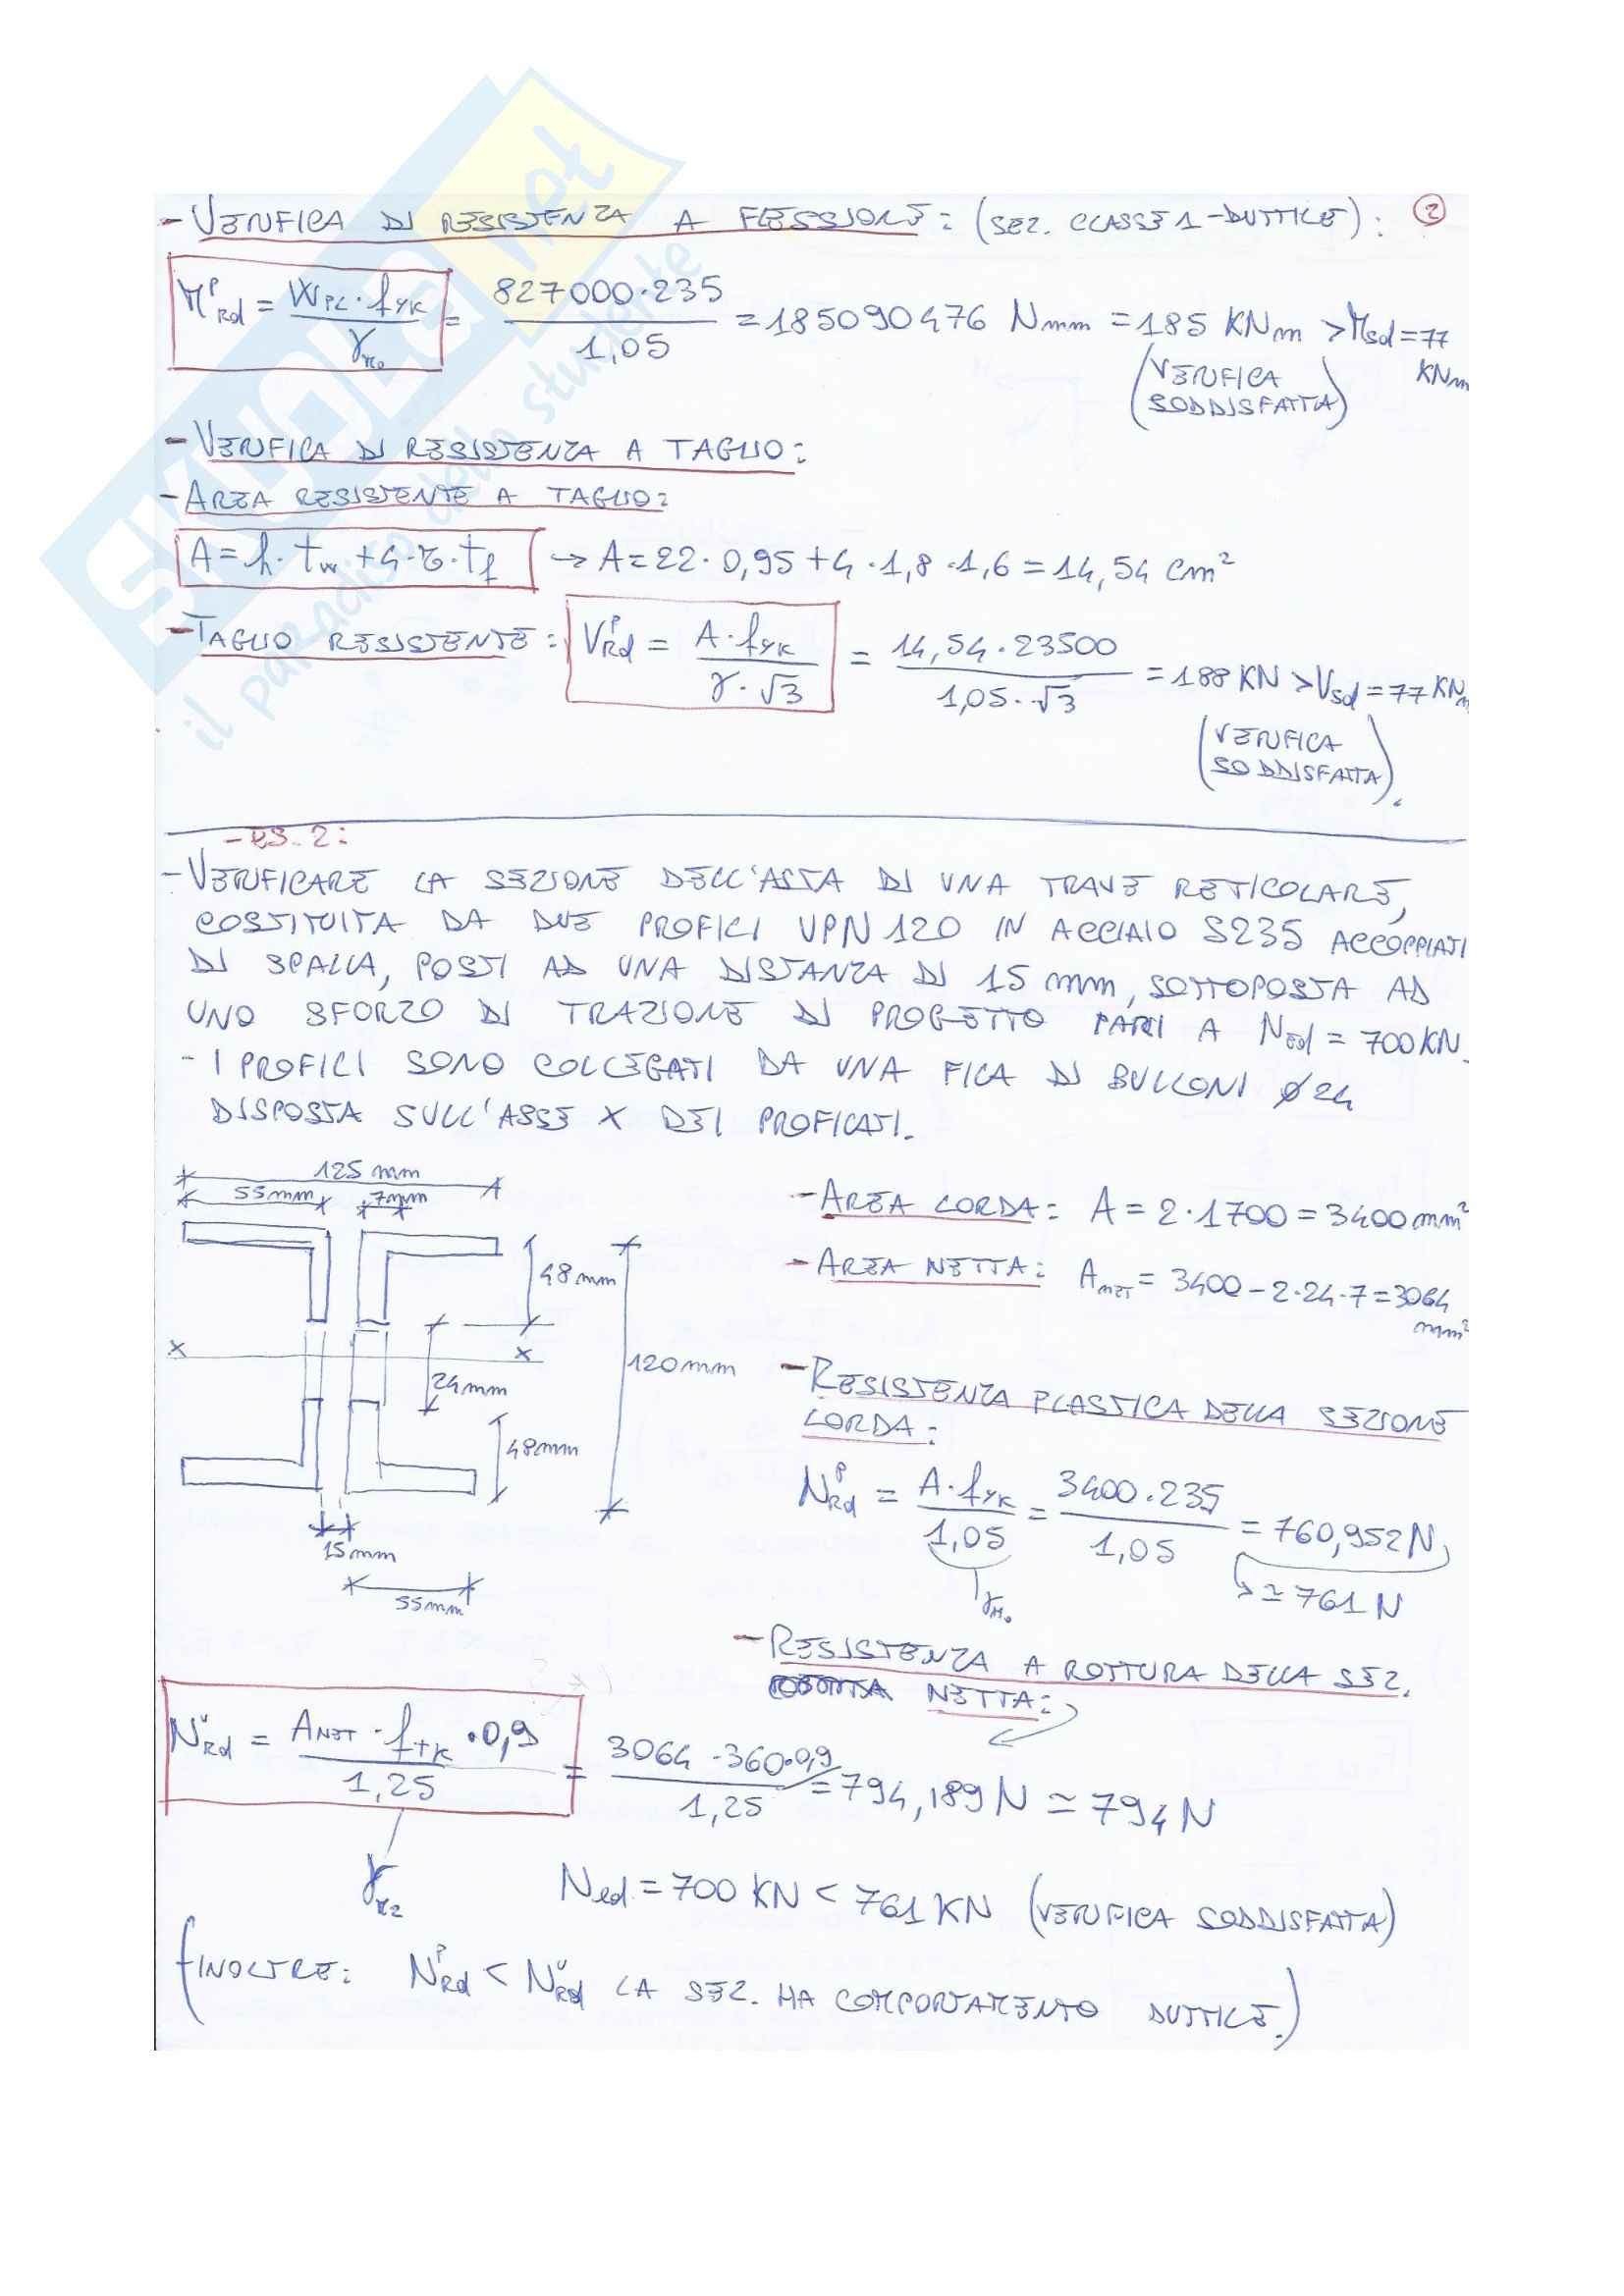 - VERIFICA DI RESISTENZA A FLESSIONE: (SEZ. CLASSE 1-DUTTILE): 2
M^P_Rd = W_PL · f_yk / γ_M0 = 827000·235 / 1,05 = 185090476 Nmm = 185 KNm > M_Sd = 77 KNm
(VERIFICA SODDISFATTA)
- VERIFICA DI RESISTENZA A TAGLIO:
- AREA RESISTENTE A TAGLIO:
A = h · t_w + 4 · r · t_f → A = 22 · 0,95 + 4 · 1,8 · 1,6 = 14,54 cm²
- TAGLIO RESISTENTE: V^P_Rd = A · f_yk / γ · √3 = 14,54 · 23500 / 1,05 · √3 = 188 KN > V_Sd = 77 KNm
(VERIFICA SODDISFATTA).
- ES. 2:
- VERIFICARE LA SEZIONE DELL'ASTA DI UNA TRAVE RETICOLARE,
COSTITUITA DA DUE PROFILI UPN 120 IN ACCIAIO S235 ACCOPPIATI
DI SPALLA, POSTI AD UNA DISTANZA DI 15 mm, SOTTOPOSTA AD
UNO SFORZO DI TRAZIONE DI PROGETTO PARI A N_Ed = 700 KN.
- I PROFILI SONO COLLEGATI DA UNA FILA DI BULLONI ø24
DISPOSTA SULL'ASSE X DEI PROFILATI.
125 mm
55mm 7mm
48mm
x x
120mm
24mm
48mm
15mm
55mm
- AREA LORDA: A = 2 · 1700 = 3400 mm²
- AREA NETTA: A_net = 3400 - 2·24·7 = 3064 mm²
- RESISTENZA PLASTICA DELLA SEZIONE
LORDA:
N^P_Rd = A · f_yk / 1,05 = 3400 · 235 / 1,05 = 760,952 N
≃ 761 N
γ_M0
- RESISTENZA A ROTTURA DELLA SEZ.
NETTA:
N^u_Rd = A_NET · f_tk · 0,9 / 1,25 = 3064 · 360·0,9 / 1,25 = 794,189 N ≃ 794 N
γ_M2
N_ed = 700 KN < 761 KN (VERIFICA SODDISFATTA)
(INOLTRE: N^P_Rd < N^u_Rd LA SEZ. HA COMPORTAMENTO DUTTILE.)
SKUOLA.net
il paradiso dello studente